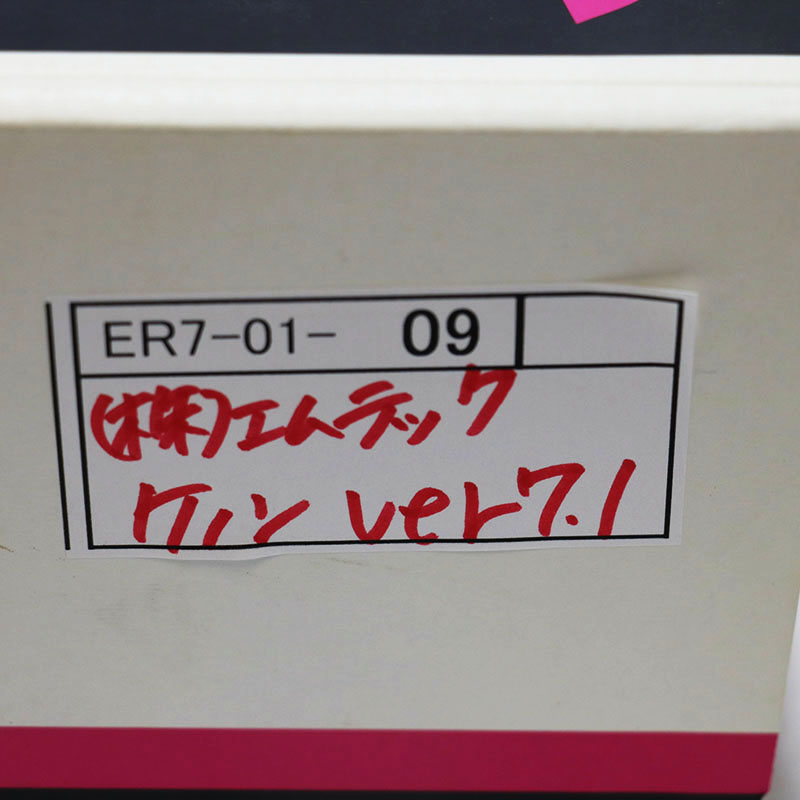 ER7-01- 09
(株)エムテック
ケノン ver7.1